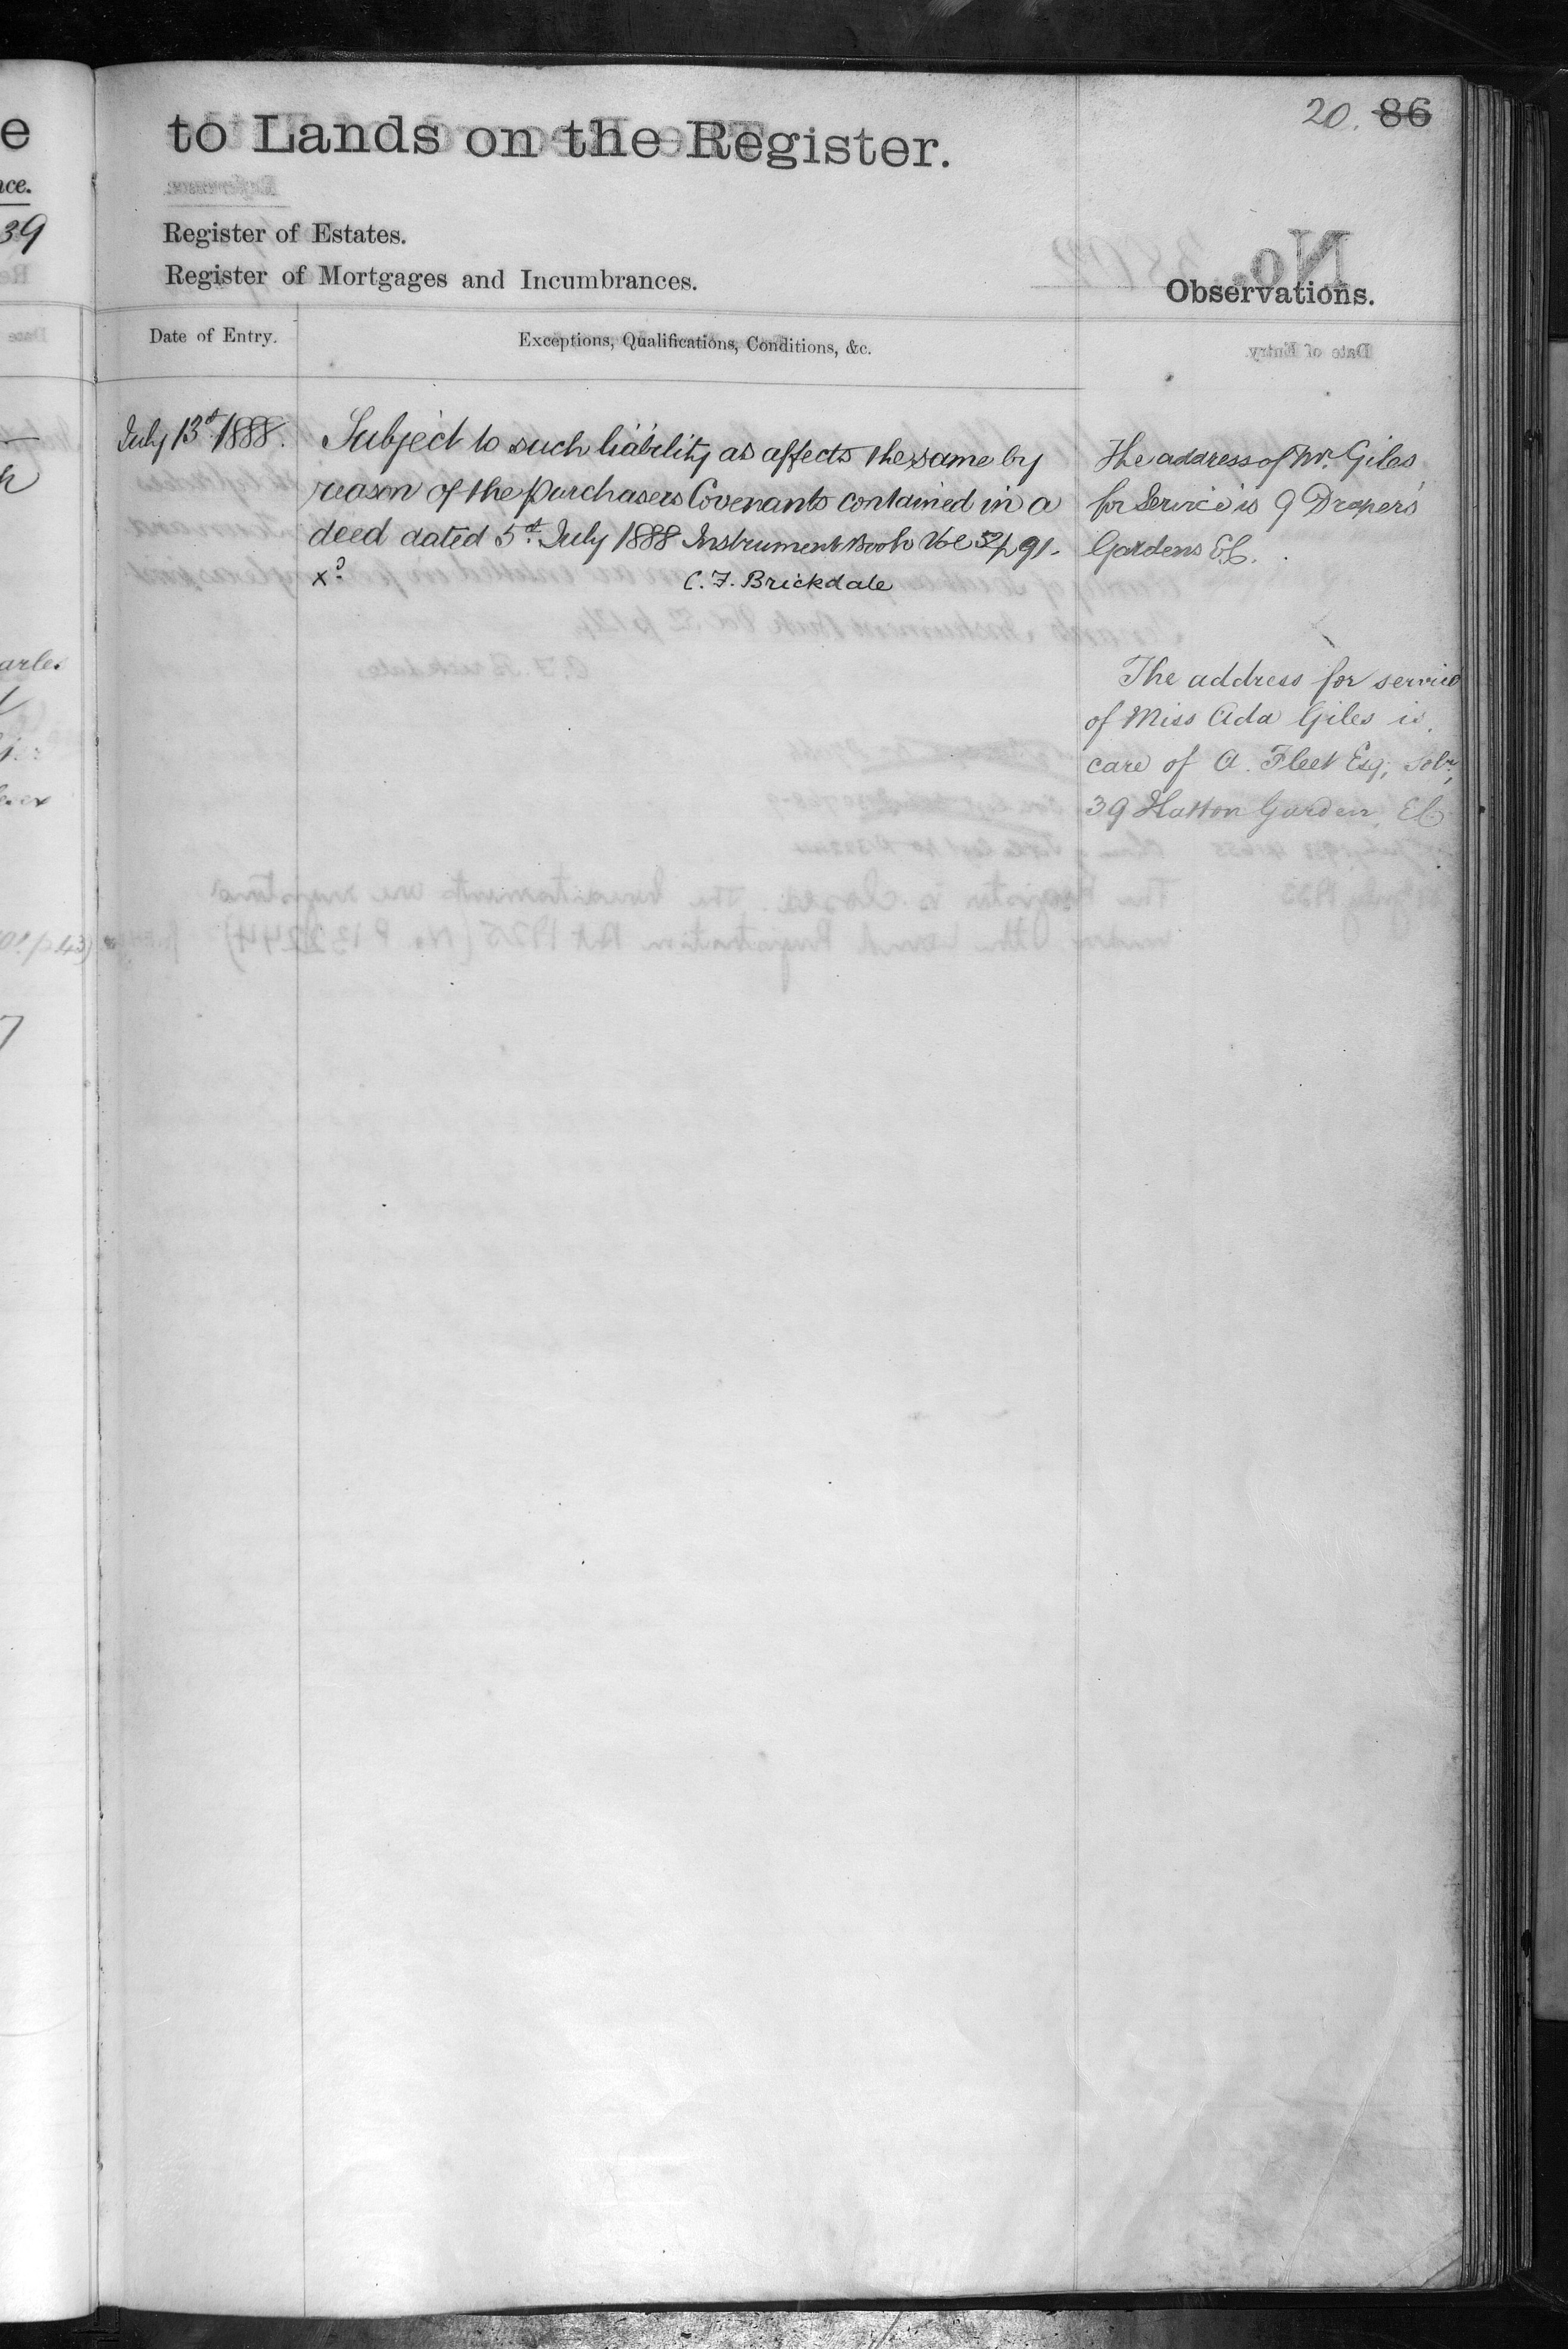 to Lands on the Register.
20. 86
Register of Estates.
Register of Mortgages and Incumbrances.
Observations.
Date of Entry.
Exceptions, Qualifications, Conditions, &c.
July 13th 1888.
Subject to such liability as affects the same by
reason of the purchasers Covenants contained in a
deed dated 5th July 1888 Instrument Book Vol 52 p 91.
C. F. Brickdale
The address of Mr. Giles
for Service is 9 Draper's
Gardens E.C.
The address for service
of Miss Ada Giles is
care of A. Fleet Esq, Solr,
39 Hatton Garden, EC